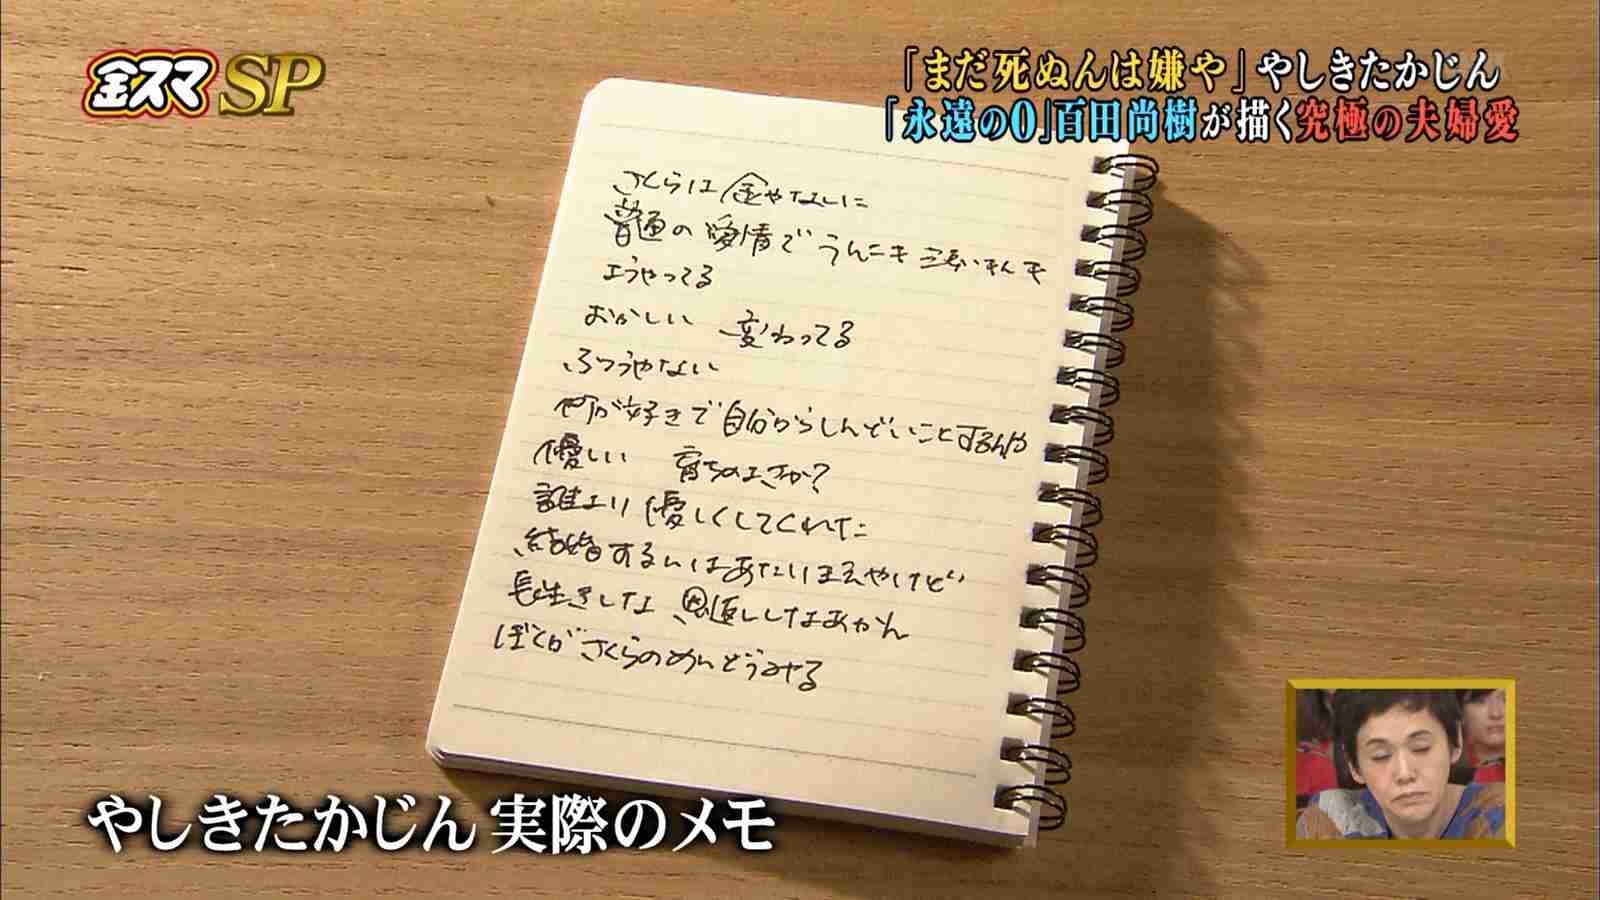 金スマSP
「まだ死ぬんは嫌や」やしきたかじん
「永遠の0」百田尚樹が描く究極の夫婦愛
さくらは金やなしに
普通の愛情でうんこも
ようやってる
おかしい 変わってる
ふつうやない
が好きで自分からしんどいことするんや
優しい 育ちのよさか?
誰より優しくしてくれた
結婚するんはあたりまえやけど
長生きしな 恩返ししなあかん
ぼくがさくらのめんどうみる
やしきたかじん 実際のメモ